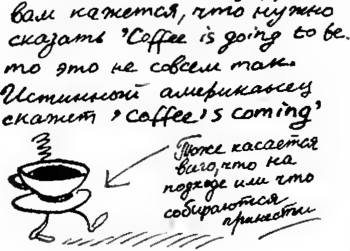 вам кажется, что нужно
сказать 'Coffee is going to be.
то это не совсем так.
Истинный американец
скажет 'Coffee's coming'
Тоже касается
всего, что на
подходе или что
собираются
принести